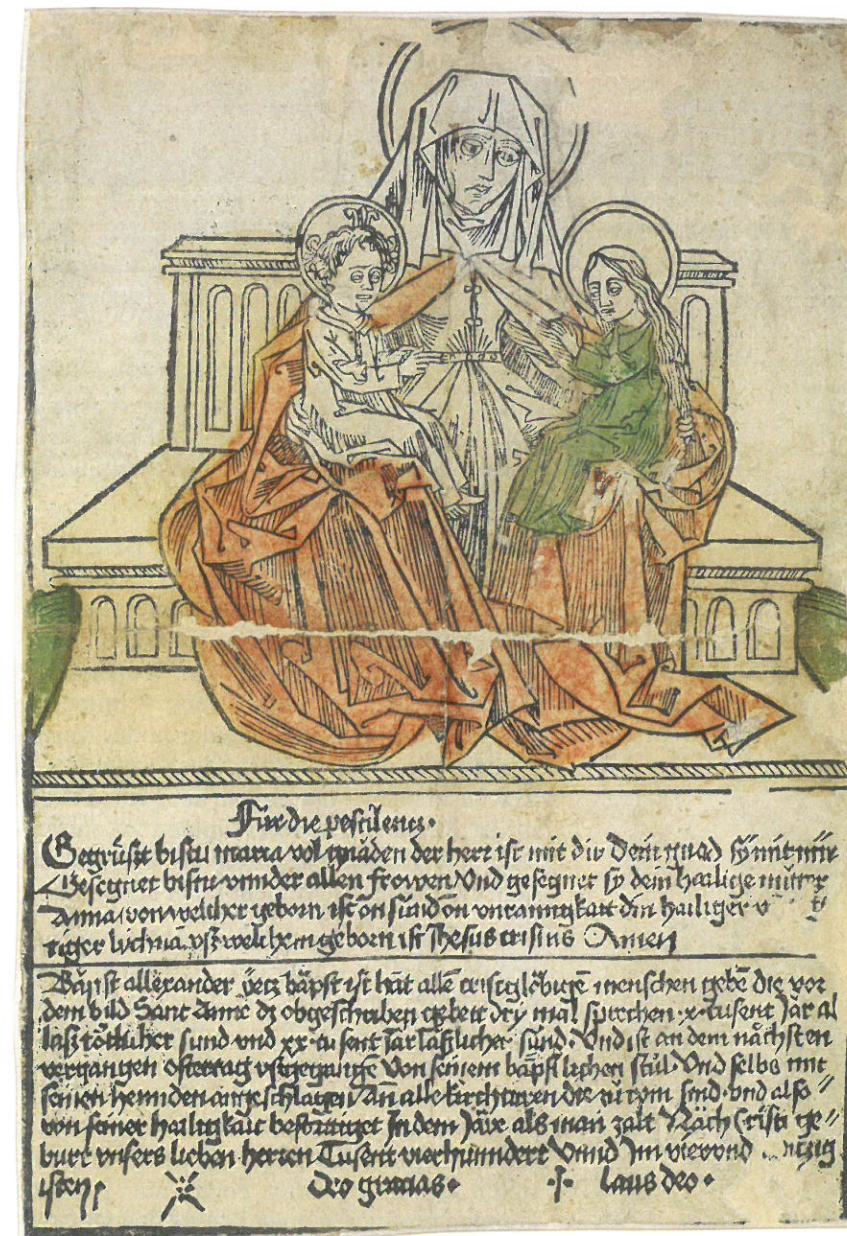 Für die pestilentz.
Gegrüszt bistu maria vol gnaden der herr ist mit dir Dein gnad sy mit mir
Gesegnet bistu vnnder allen frowen Vnd gesegnet sy dein hailige mutter
Anna von welcher geborn ist on sünd on vnrainigkait din hailiger
lychnā vsz welchem geborn ist Jhesus cristus Amen
Bäpst allexander yetz bäpst ist hät allē cristglöbigē menschen gebē die vor
dem bild Sant Anne dz obgeschriben gebett dry mal sprechen .x. tusent Jar ab
lasz tötlicher sund vnd xx tusent Jar läszlicher sünd. Vnd ist an dem nächsten
vergangen ostertag vszgegangē Von seinem bäpstlichen stůl. Vnd selbs mit
seinen hennden angeschlagen An alle kirchturen die zů rom sind. vnd also
von seiner hailigkait bestättiget In dem Jare als man zalt Näch Cristi ge
burt vnsers lieben herren Tusent vierhunndert Vnnd Im viervnd
isten
Deo gracias. laus deo.